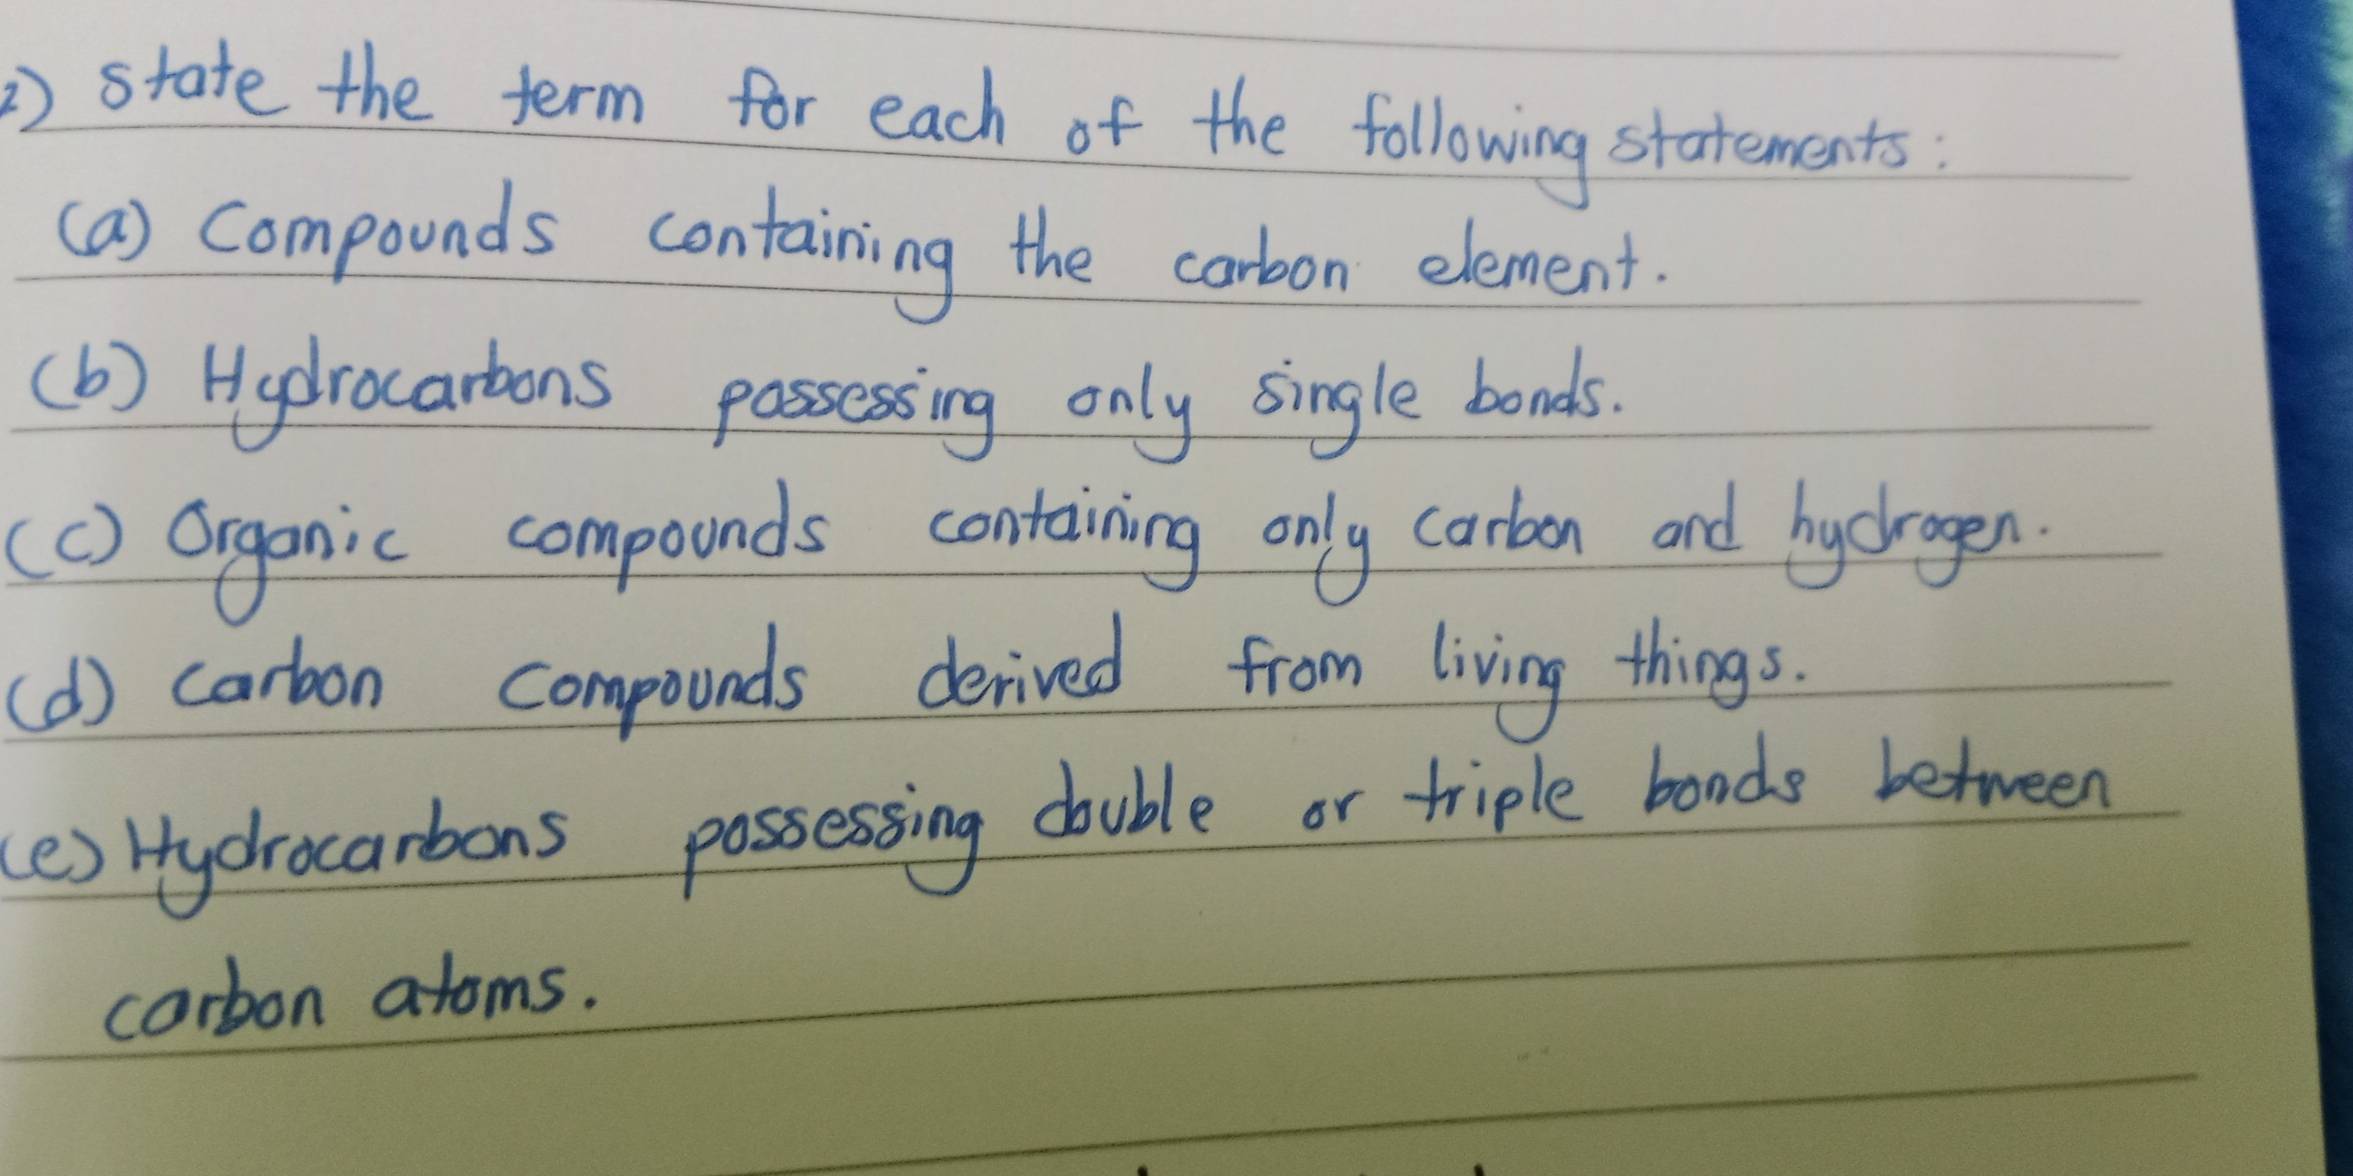 2) state the term for each of the following statements:
(a) Compounds containing the carbon element.
(b) Hydrocarbons possessing only single bonds.
(c) Organic compounds containing only carbon and hydrogen.
(d) carbon compounds derived from living things.
(e) Hydrocarbons possessing double or triple bonds between
carbon atoms.